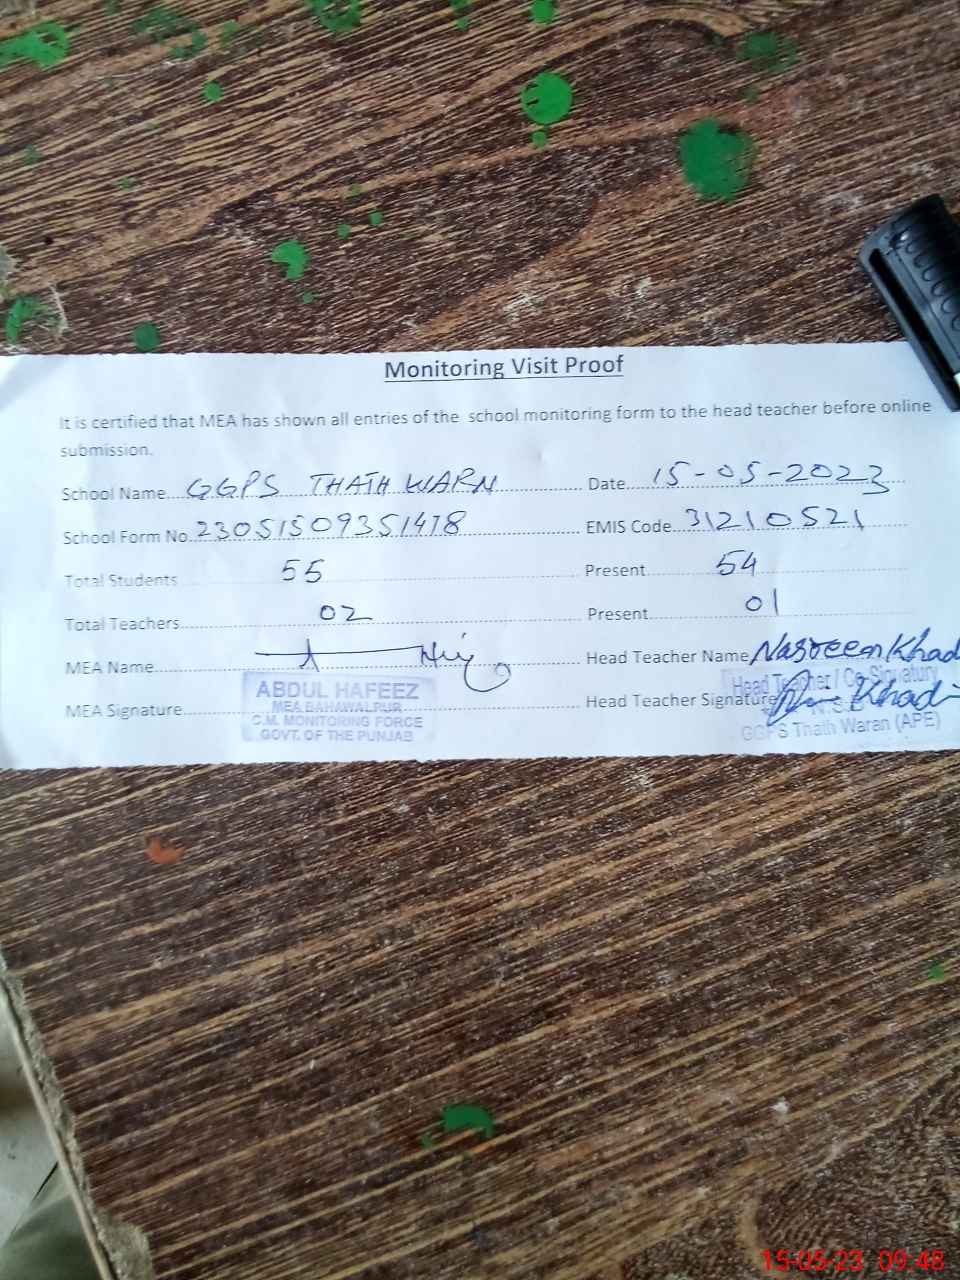 Monitoring Visit Proof
It is certified that MEA has shown all entries of the school monitoring form to the head teacher before online
submission.
School Name GGPS THATH WARN Date 15-05-2023
School Form No. 23051509351418 EMIS Code 31210521
Total Students 55 Present 54
Total Teachers 02 Present 01
MEA Name Head Teacher Name Nasreen Khad
MEA Signature Head Teacher Signature
ABDUL HAFEEZ
MEA BAHAWALPUR
C.M. MONITORING FORCE
GOVT. OF THE PUNJAB
Head Teacher / Co-Signatury
GGPS Thath Waran (APE)
15-05-23 09:48